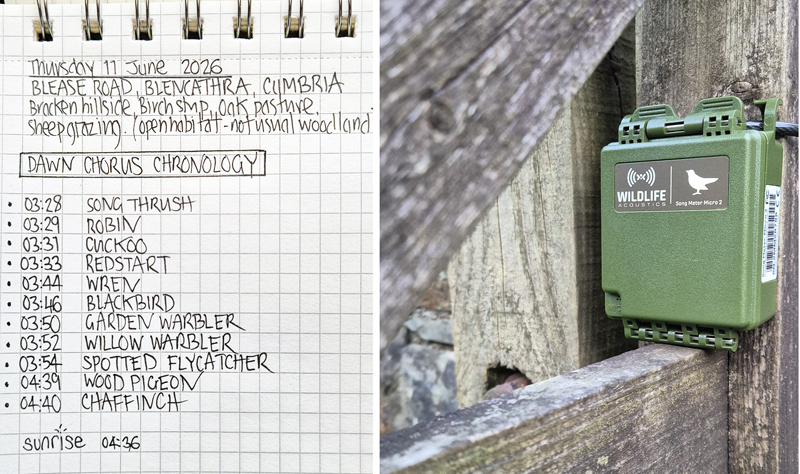 Thursday 11 June 2026
BLEASE ROAD, BLENCATHRA, CUMBRIA
Bracken hillside, Birch stmp, oak pasture,
sheep grazing. (open habitat - not usual woodland
DAWN CHORUS CHRONOLOGY
• 03:28 SONG THRUSH
• 03:29 ROBIN
• 03:31 CUCKOO
• 03:33 REDSTART
• 03:44 WREN
• 03:46 BLACKBIRD
• 03:50 GARDEN WARBLER
• 03:52 WILLOW WARBLER
• 03:54 SPOTTED FLYCATCHER
• 04:39 WOOD PIGEON
• 04:40 CHAFFINCH
sunrise 04:36
WILDLIFE
ACOUSTICS
Song Meter Micro 2